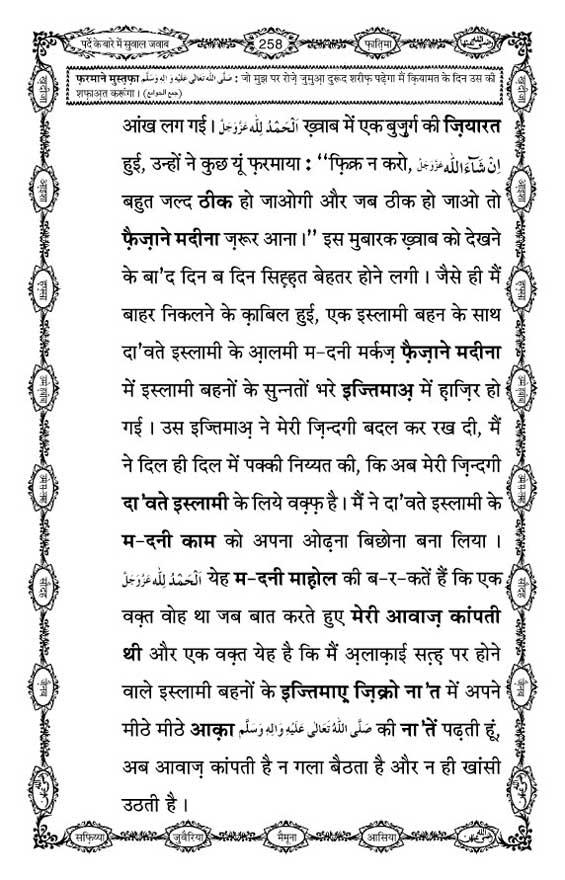 पर्दे के बारे में सुवाल जवाब 258 फ़ातिमा
फ़रमाने मुस्तफ़ा صَلَّى اللهُ تَعَالٰى عَلَيْهِ وَاٰلِهٖ وَسَلَّم : जो मुझ पर रोज़े जुमुआ दुरूद शरीफ़ पढ़ेगा मैं क़ियामत के दिन उस की
शफ़ाअत करूंगा। (جمع الجوامع)
आंख लग गई। اَلْحَمْدُ لِلّٰه عَزَّوَجَلَّ ख़्वाब में एक बुज़ुर्ग की ज़ियारत
हुई, उन्हों ने कुछ यूं फ़रमाया : ‘‘फ़िक्र न करो, اِنْ شَآءَ اللّٰه عَزَّوَجَلَّ
बहुत जल्द ठीक हो जाओगी और जब ठीक हो जाओ तो
फ़ैज़ाने मदीना ज़रूर आना।’’ इस मुबारक ख़्वाब को देखने
के बा’द दिन ब दिन सिह़्ह़त बेहतर होने लगी। जैसे ही मैं
बाहर निकलने के क़ाबिल हुई, एक इस्लामी बहन के साथ
दा’वते इस्लामी के आ़लमी म-दनी मर्कज़ फ़ैज़ाने मदीना
में इस्लामी बहनों के सुन्नतों भरे इज्तिमाअ़ में ह़ाज़िर हो
गई। उस इज्तिमाअ़ ने मेरी ज़िन्दगी बदल कर रख दी, मैं
ने दिल ही दिल में पक्की निय्यत की, कि अब मेरी ज़िन्दगी
दा’वते इस्लामी के लिये वक़्फ़ है। मैं ने दा’वते इस्लामी के
म-दनी काम को अपना ओढ़ना बिछोना बना लिया।
اَلْحَمْدُ لِلّٰه عَزَّوَجَلَّ येह म-दनी माह़ोल की ब-र-कतें हैं कि एक
वक़्त वोह था जब बात करते हुए मेरी आवाज़ कांपती
थी और एक वक़्त येह है कि मैं अ़लाक़ाई सत़्ह़ पर होने
वाले इस्लामी बहनों के इज्तिमाए़ ज़िक्रो ना’त में अपने
मीठे मीठे आक़ा صَلَّى اللهُ تَعَالٰى عَلَيْهِ وَاٰلِهٖ وَسَلَّم की ना’तें पढ़ती हूं,
अब आवाज़ कांपती है न गला बैठता है और न ही खांसी
उठती है।
सफ़िय्या जुवैरिया मैमूना आसिया